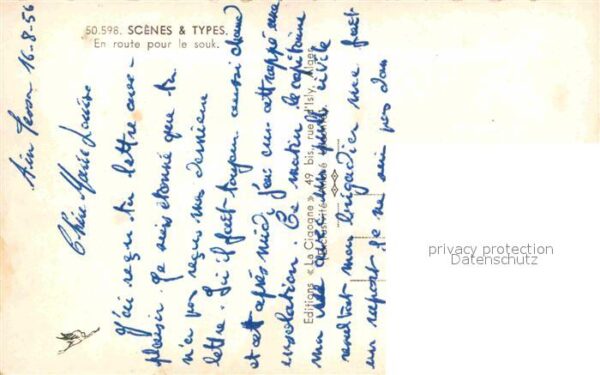 50.598. SCÈNES & TYPES.
En route pour le souk.
16-8-56
Chère Marie Louise
J'ai reçu ta lettre avec
plaisir. Je suis étonné que tu
n'ai pas reçu ma dernière
lettre. Ici il fait toujours aussi chaud
et cet après midi j'ai cru attrappé une
insolation. Ce matin le capitaine
m'a vu avec une civile
resultat mon brigadier me fait
un report je ne sui pas dans
Editions « La Cigogne » 49 bis, rue d'Isly, Alger
privacy protection
Datenschutz